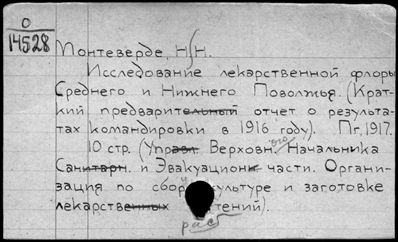 О
14528
Монтеверде, Н. Н.
Исследование лекарственной флоры
Среднего и Нижнего Поволжья. (Крат-
кий предварительный отчет о результа-
тах командировки в 1916 году). Пг, 1917.
10 стр. (Управл. Верховн. ого Начальника
Санитарн. и Эвакуационн части. Органи-
зация по сбор культуре и заготовке
лекарственных тений).
раст